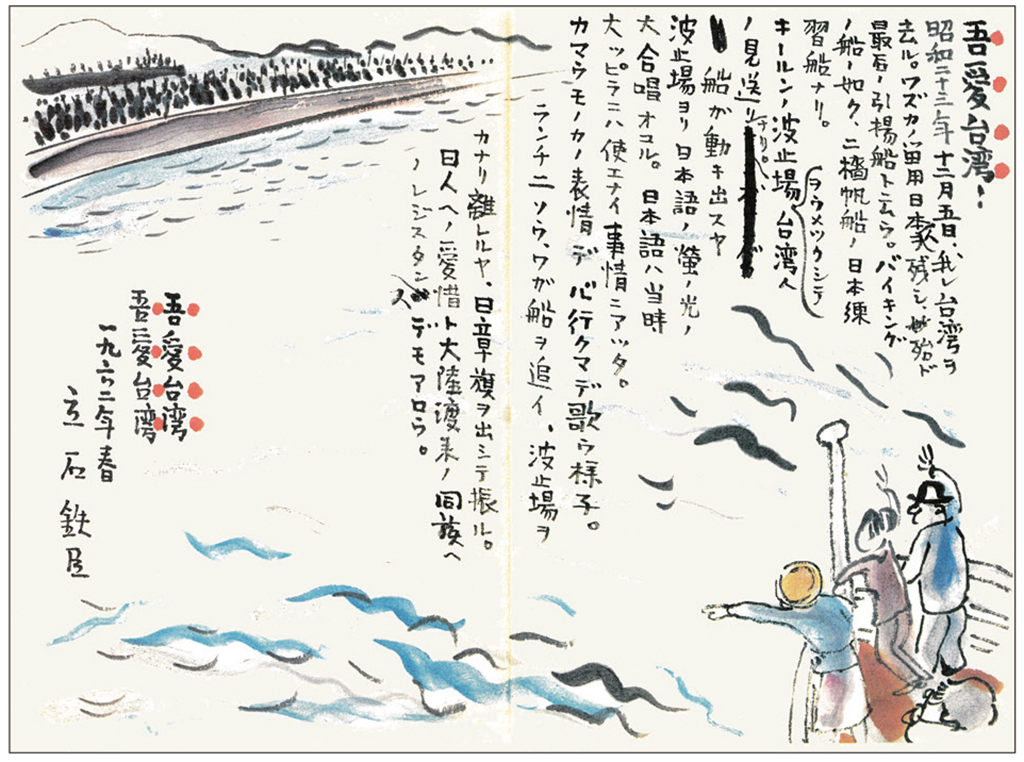 吾愛台湾！
昭和二十三年十二月五日、我レ台湾ヲ
去ル。ワズカノ留用日本人ヲ残シ、殆ド
最后ノ引揚船トナラウ。バイキング
ノ船ノ如ク、二檣帆船ノ日本練
習船ナリ。
キールンノ波止場ヲウメツクシテ台湾人
ノ見送リナリ。
船が動キ出スヤ
波止場ヨリ日本語ノ螢ノ光ノ
大合唱オコル。日本語ハ当時
大ッピラニハ使エナイ事情ニアッタ。
カマウモノカノ表情デ心行クマデ歌ウ様子。
ランチ二ソウ、ワガ船ヲ追イ、波止場ヲ
カナリ離レルヤ、日章旗ヲ出シテ振ル。
日人ヘノ愛惜ト大陸渡来ノ同族ヘ
ノレジスタンスデモアロウ。
吾愛台湾
吾愛台湾
一九六二年春
立石鉄臣